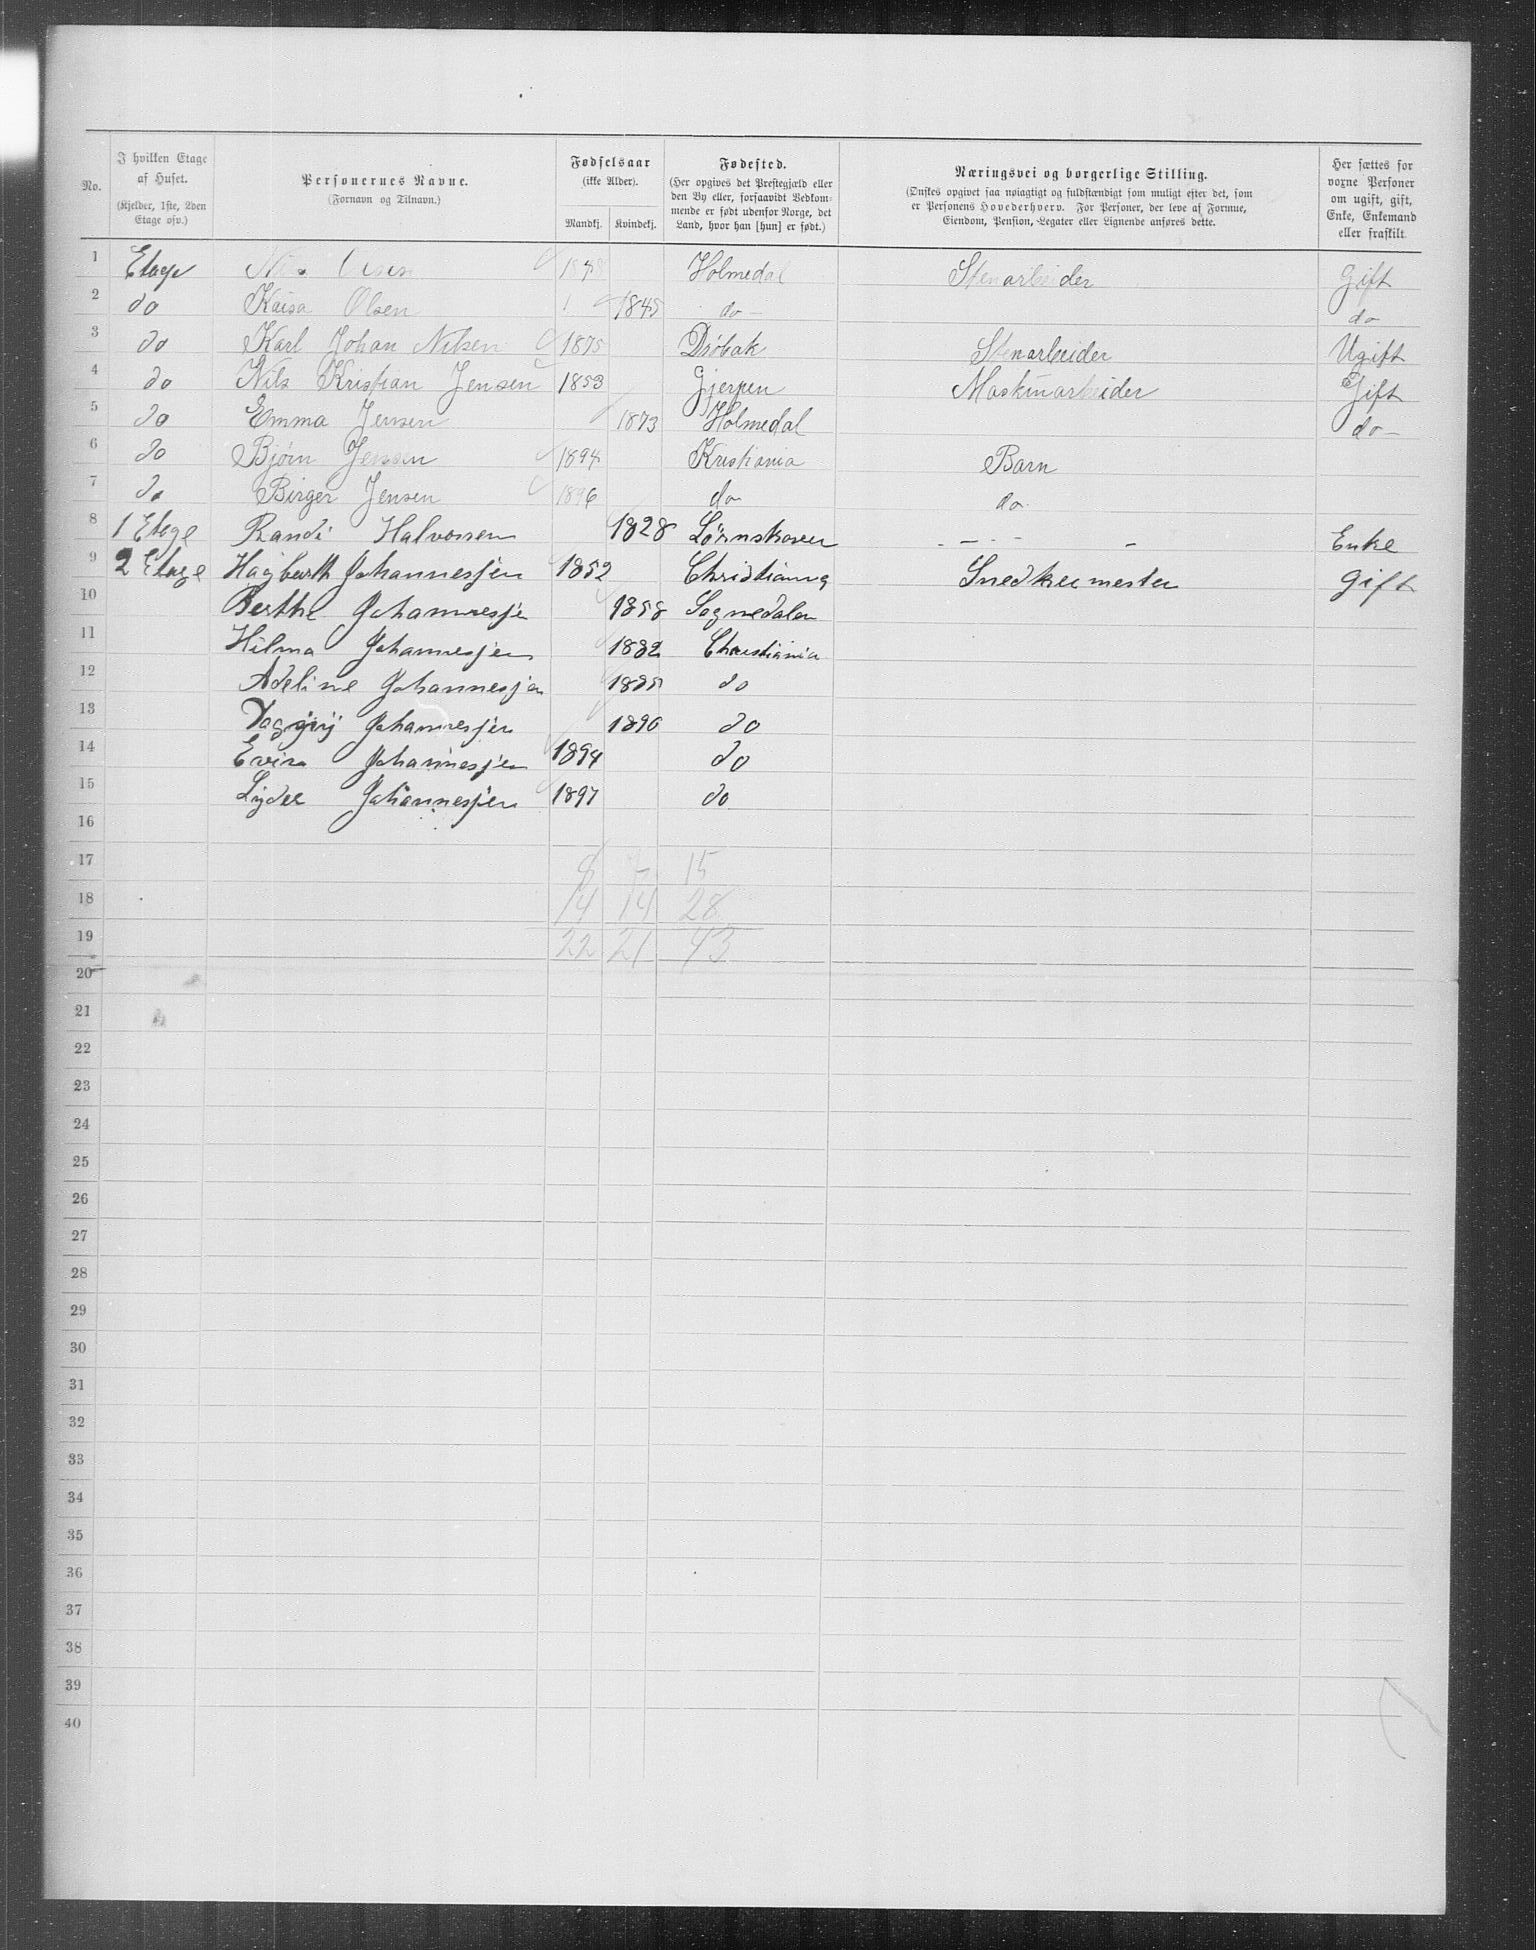 No. I hvilken Etage af Huset. (Kjelder, 1ste, 2den Etage osv.) Personernes Navne. (Fornavn og Tilnavn.) Fødselsaar (ikke Alder). Mandkj. Kvindekj. Fødested. (Her opgives det Prestegjæld eller den By eller, forsaavidt Vedkommende er født udenfor Norge, det Land, hvor han [hun] er født.) Næringsvei og borgerlige Stilling. (Ønskes opgivet saa nøiagtigt og fuldstændigt som muligt efter det, som er Personens Hovederhverv. For Personer, der leve af Formue, Eiendom, Pension, Legater eller Lignende anføres dette. Her sættes for voxne Personer om ugift, gift, Enke, Enkemand eller fraskilt.
1 Etage Olsen Holmedal Stenarbeider Gift
2 do Kaisa Olsen 1845 do - do
3 do Karl Johan Nilsen 1875 Drøbak Stenarbeider Ugift
4 do Nils Kristian Jensen 1853 Gjerpen Maskinarbeider Gift
5 do Emma Jensen 1873 Holmedal do -
6 do Bjørn Jensen 1894 Kristiania Barn
7 do Birger Jensen 1896 do do
8 1 Etage Randi Halvorsen 1828 Enke
9 2 Etage Hagbarth Johannesjen 1852 Christiania Snedkermester gift
10 Berthe Johannesjen 1858 Sognedalen
11 Hilma Johannesjen 1882 Christiania
12 Adeline Johannesjen 1885 do
13 Johannesjen 1890 do
14 Johannesjen 1894 do
15 Lyder Johannesjen 1897 do
16
17 8 7 15
18 14 14 28
19 22 21 43
20
21
22
23
24
25
26
27
28
29
30
31
32
33
34
35
36
37
38
39
40